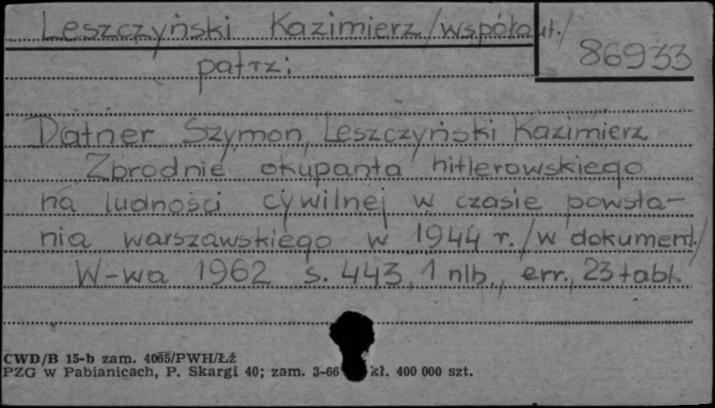 Leszczyński Kazimierz /współaut./
86933
patrz:
Datner Szymon, Leszczyński Kazimierz
Zbrodnie okupanta hitlerowskiego
na ludności cywilnej w czasie powsta-
nia warszawskiego w 1944 r. /w dokument./
W-wa 1962 s. 443, 1 nlb., err., 23 tabl.
CWD/B 15-b zam. 4065/PWH/Łż
PZG w Pabianicach, P. Skargi 40; zam. 3-66 kł. 400 000 szt.